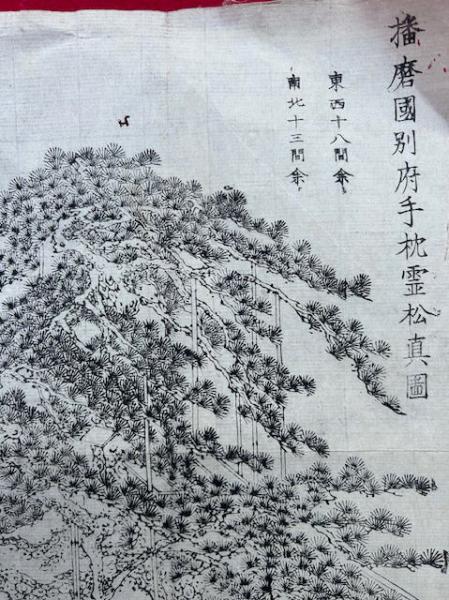 播磨國別府手枕霊松真圖
東西十八間余
南北十三間余